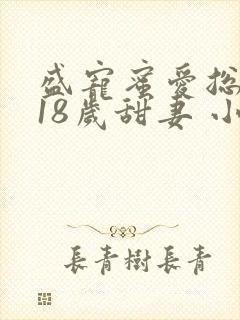 盛寵蜜愛總
18歲甜妻 小
長青樹長青